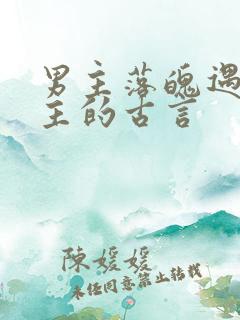 男主落魄遇
主的古言
陳媛媛
未经同意禁止转载